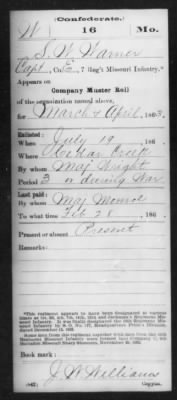 (Confederate.)
W 16 Mo.
S. W. Warner
Capt, Co. E, 7 Reg't Missouri Infantry.*
Appears on
Company Muster Roll
of the organization named above,
for March & April, 1863.
Enlisted:
When July 19, 186
Where Cedar Creek
By whom Maj Wright
Period 3 or during War
Last paid:
By whom Maj Monroe
To what time Feb 28, 186
Present or absent Present
Remarks:
Book mark:
J. W. Williams
(642) Copyist.